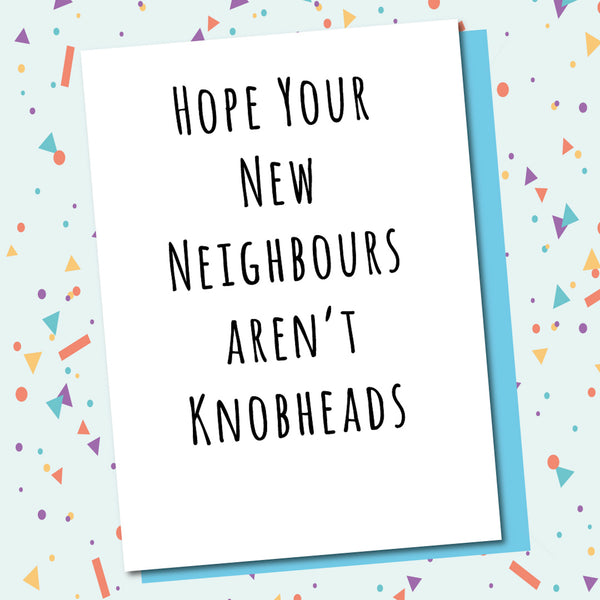 HOPE YOUR
NEW
NEIGHBOURS
AREN'T
KNOBHEADS